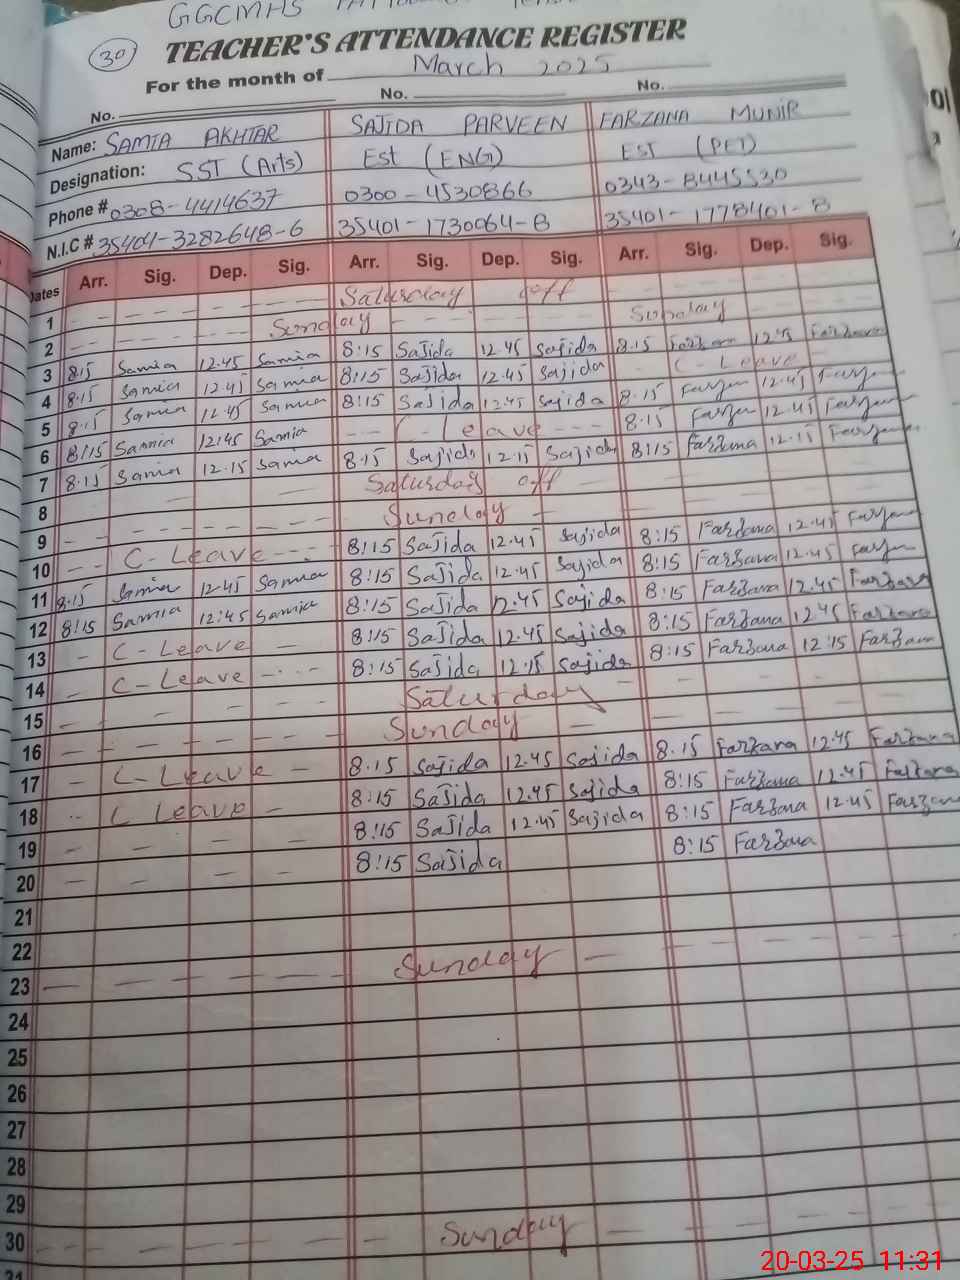 GGCMHS
30
TEACHER'S ATTENDANCE REGISTER
For the month of March 2025
No. No. No.
Name: SAMIA AKHTAR SAJIDA PARVEEN FARZANA MUNIR
Designation: SST (Arts) Est (ENG) EST (PET)
Phone # 0308-4414637 0300-4530866 0343-8445530
N.I.C # 35404-3282648-6 35401-1730064-8 35401-1778401-8
Dates Arr. Sig. Dep. Sig. Arr. Sig. Dep. Sig. Arr. Sig. Dep. Sig.
1 Saturday off
2 Sunday Sunday
3 8:15 Samia 12.45 Samia 8:15 Sajida 12.45 Sajida 8.15 Farzana 12.45 Farzana
4 8.15 Samia 12.45 Samia 8:15 Sajida 12.45 Sajida C-Leave
5 8.15 Samia 12.45 Samia 8:15 Sajida 12.45 Sajida 8.15 Farzana 12.45 Farzana
6 8:15 Samia 12:45 Samia C-Leave 8.15 Farzana 12.45 Farzana
7 8.15 Samia 12.15 Samia 8.15 Sajida 12.15 Sajida 8:15 Farzana 12.15 Farzana
8 Saturday off
9 Sunday
10 C-Leave 8:15 Sajida 12.45 Sajida 8:15 Farzana 12.45 Farzana
11 8.15 Samia 12.45 Samia 8:15 Sajida 12.45 Sajida 8:15 Farzana 12.45 Farzana
12 8:15 Samia 12:45 Samia 8:15 Sajida 12.45 Sajida 8:15 Farzana 12.45 Farzana
13 C-Leave 8:15 Sajida 12.45 Sajida 8:15 Farzana 12.45 Farzana
14 C-Leave 8:15 Sajida 12.15 Sajida 8:15 Farzana 12:15 Farzana
15 Saturday
16 Sunday
17 C-Leave 8.15 Sajida 12.45 Sajida 8.15 Farzana 12.45 Farzana
18 C Leave 8:15 Sajida 12.45 Sajida 8:15 Farzana 12.45 Farzana
19 8:15 Sajida 12.45 Sajida 8:15 Farzana 12.45 Farzana
20 8:15 Sajida 8:15 Farzana
21
22
23 Sunday
24
25
26
27
28
29
30 Sunday
31
20-03-25 11:31